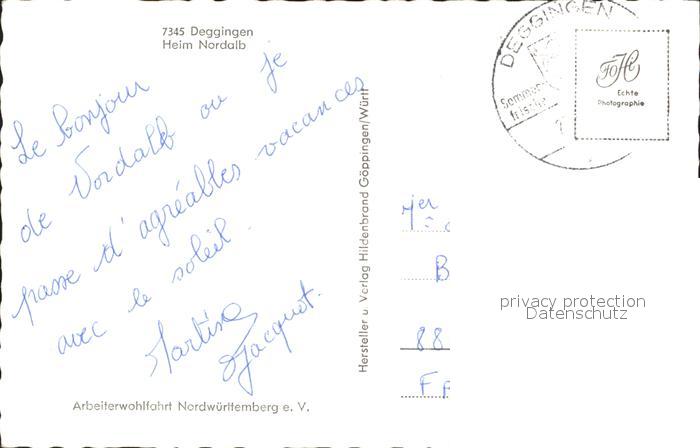 7345 Deggingen
Heim Nordalb
Le bonjour
de Nordalb ou je
passe d'agréables vacances
avec le soleil.
Martine
Jacquot.
Arbeiterwohlfahrt Nordwürttemberg e. V.
Hersteller u. Verlag Hildenbrand Göppingen/Württ
DEGGINGEN
Sommer
frische
Echte
Photographie
B
88
F
privacy protection
Datenschutz